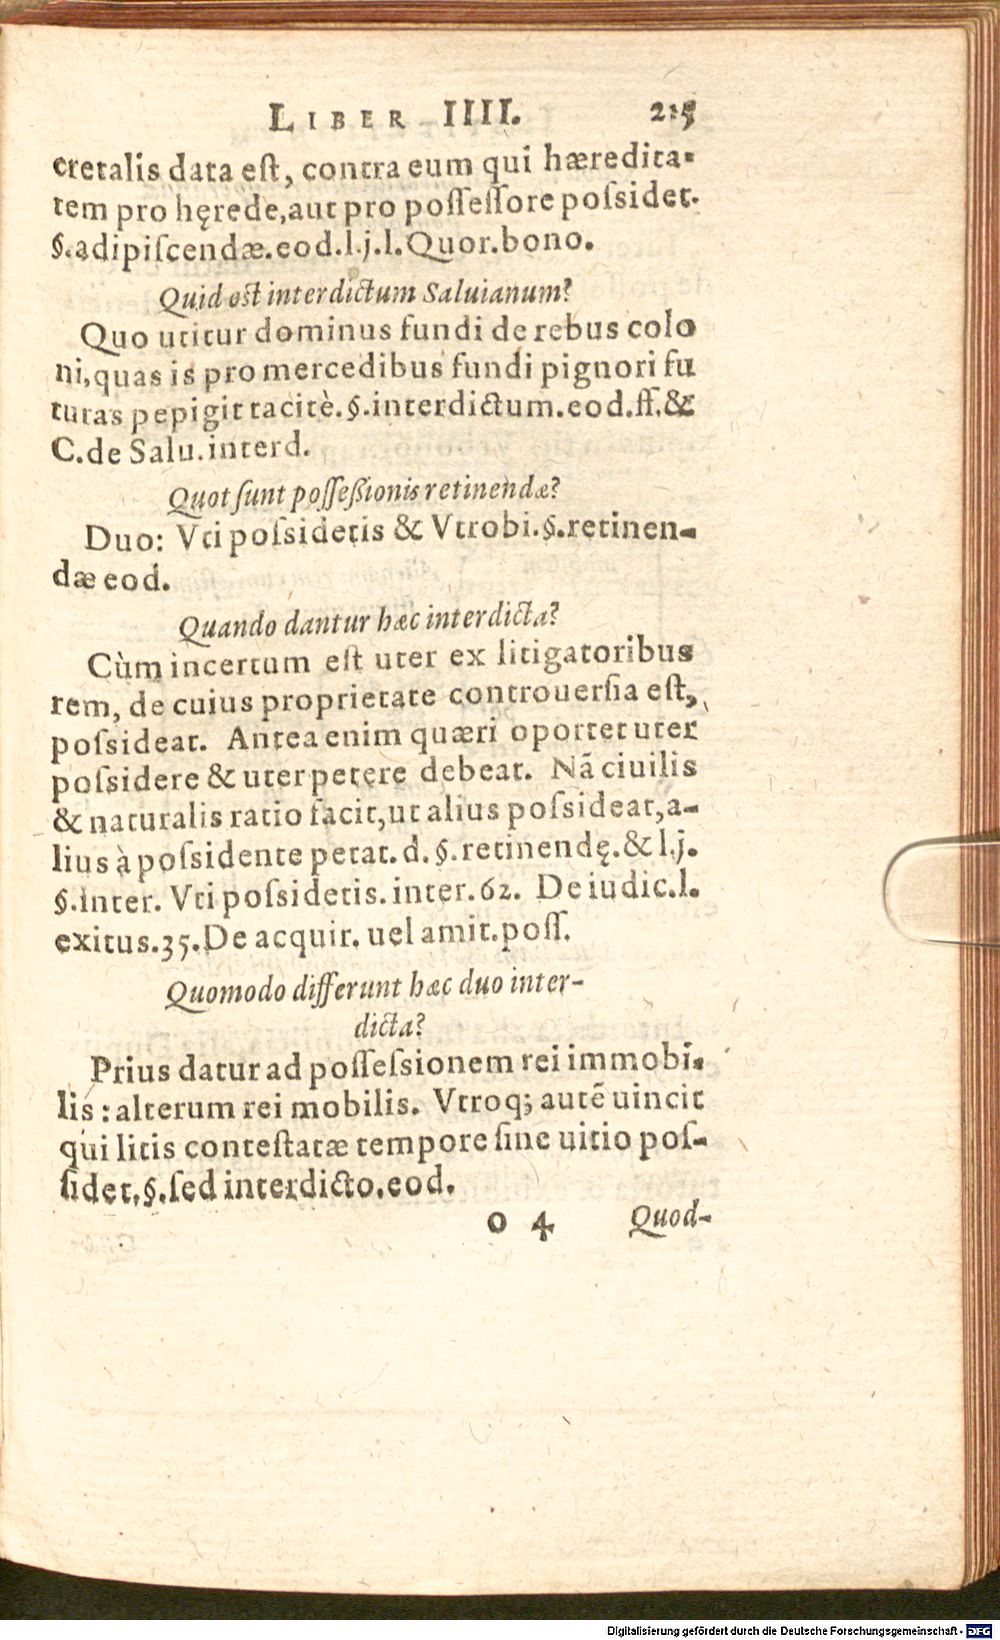 LIBER IIII. 215
cretalis data est, contra eum qui hæredita-
tem pro hęrede, aut pro possessore possidet.
§.adipiscendæ.eod.l.j.l.Quor.bono.
Quid est interdictum Saluianum?
Quo utitur dominus fundi de rebus colo
ni, quas is pro mercedibus fundi pignori fu
turas pepigit tacitè.§.interdictum.eod.ff.&
C.de Salu.interd.
Quot sunt possessionis retinendæ?
Duo: Vti possidetis & Vtrobi.§.retinen-
dæ eod.
Quando dantur hæc interdicta?
Cùm incertum est uter ex litigatoribus
rem, de cuius proprietate controuersia est,
possideat. Antea enim quæri oportet uter
possidere & uter petere debeat. Nã ciuilis
& naturalis ratio facit, ut alius possideat, a-
lius à possidente petat.d.§.retinendę.& l.j.
§.inter. Vti possidetis. inter.62. De iudic.l.
exitus.35.De acquir. uel amit.poss.
Quomodo differunt hæc duo inter-
dicta?
Prius datur ad possessionem rei immobi-
lis: alterum rei mobilis. Vtroq; autẽ uincit
qui litis contestatæ tempore sine uitio pos-
sidet.§.sed interdicto.eod.
o 4 Quod-
Digitalisierung gefördert durch die Deutsche Forschungsgemeinschaft - DFG